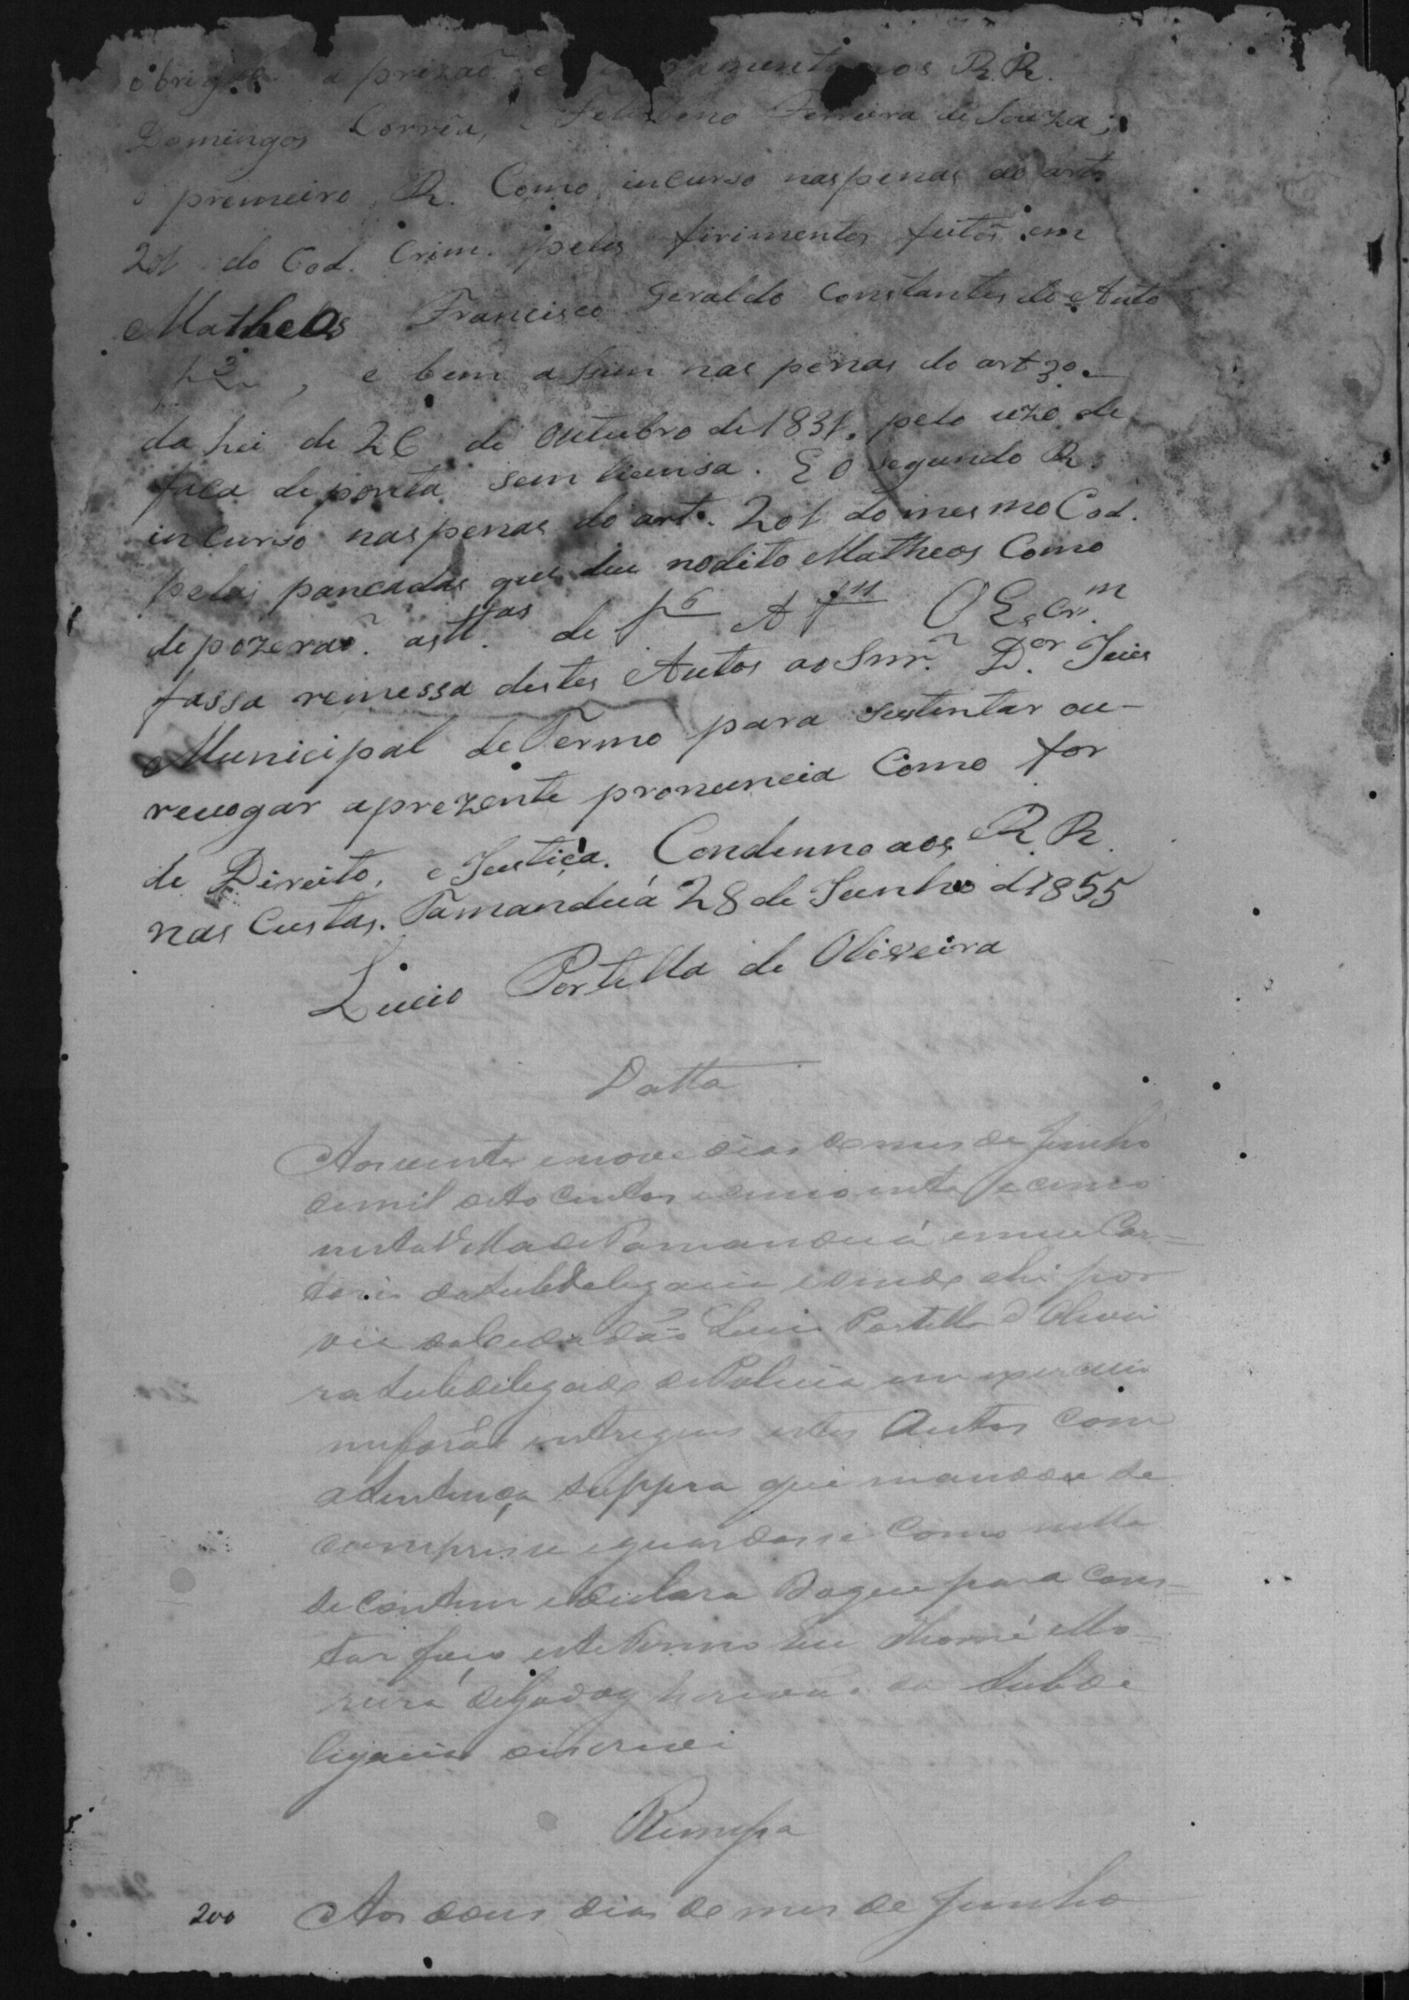 a prizaõ e aos R.R.
Domingos Corrêa, Ferreira de Souza;
o premeiro R. Como incurso nas penas do art.
201 do Cod. Crim. pelos firimentos feitos em
Matheos Francisco Geraldo Constantes do Auto
e bem assim nas penas do art 3o.
da Lei de 26 de Outubro de 1831. pelo uzo de
faca de ponta sem licensa. E o segundo R.
incurso nas penas do art. 201 do mesmo Cod.
pelas pancadas que deu no dito Matheos Como
depozeraõ as tt.as de f 6 A f 11 O Escr.m
fassa remessa destes Autos ao Snr. D.or Juis
Municipal do Termo para sustentar ou
revogar a prezente pronuncia Como for
de Direito, e Justiça. Condenno aos R.R.
nas Custas. Tamanduá 28 de Junho d 1855
Lucio Portella de Oliveira
Datta
Aos vinte e nove dias do mes de Junho
de mil oito centos e cincoenta e cinco
nesta Villa de Tamanduá em meu Car-
torio da Subdelegacia e sendo ahi por
Lucio Portella d Olivei
ra Subdelegado de Policia em exercicio
me foraõ entregues estes Autos com
a Sentença suppra que mandou se
comprisse e guardasse Como nella
se contem e declara Do que para cons-
tar faço este Termo Eu Thomé Mo-
reira da Subde
legacia o escrevi
Remessa
200 Aos dous dias do mes de Junho